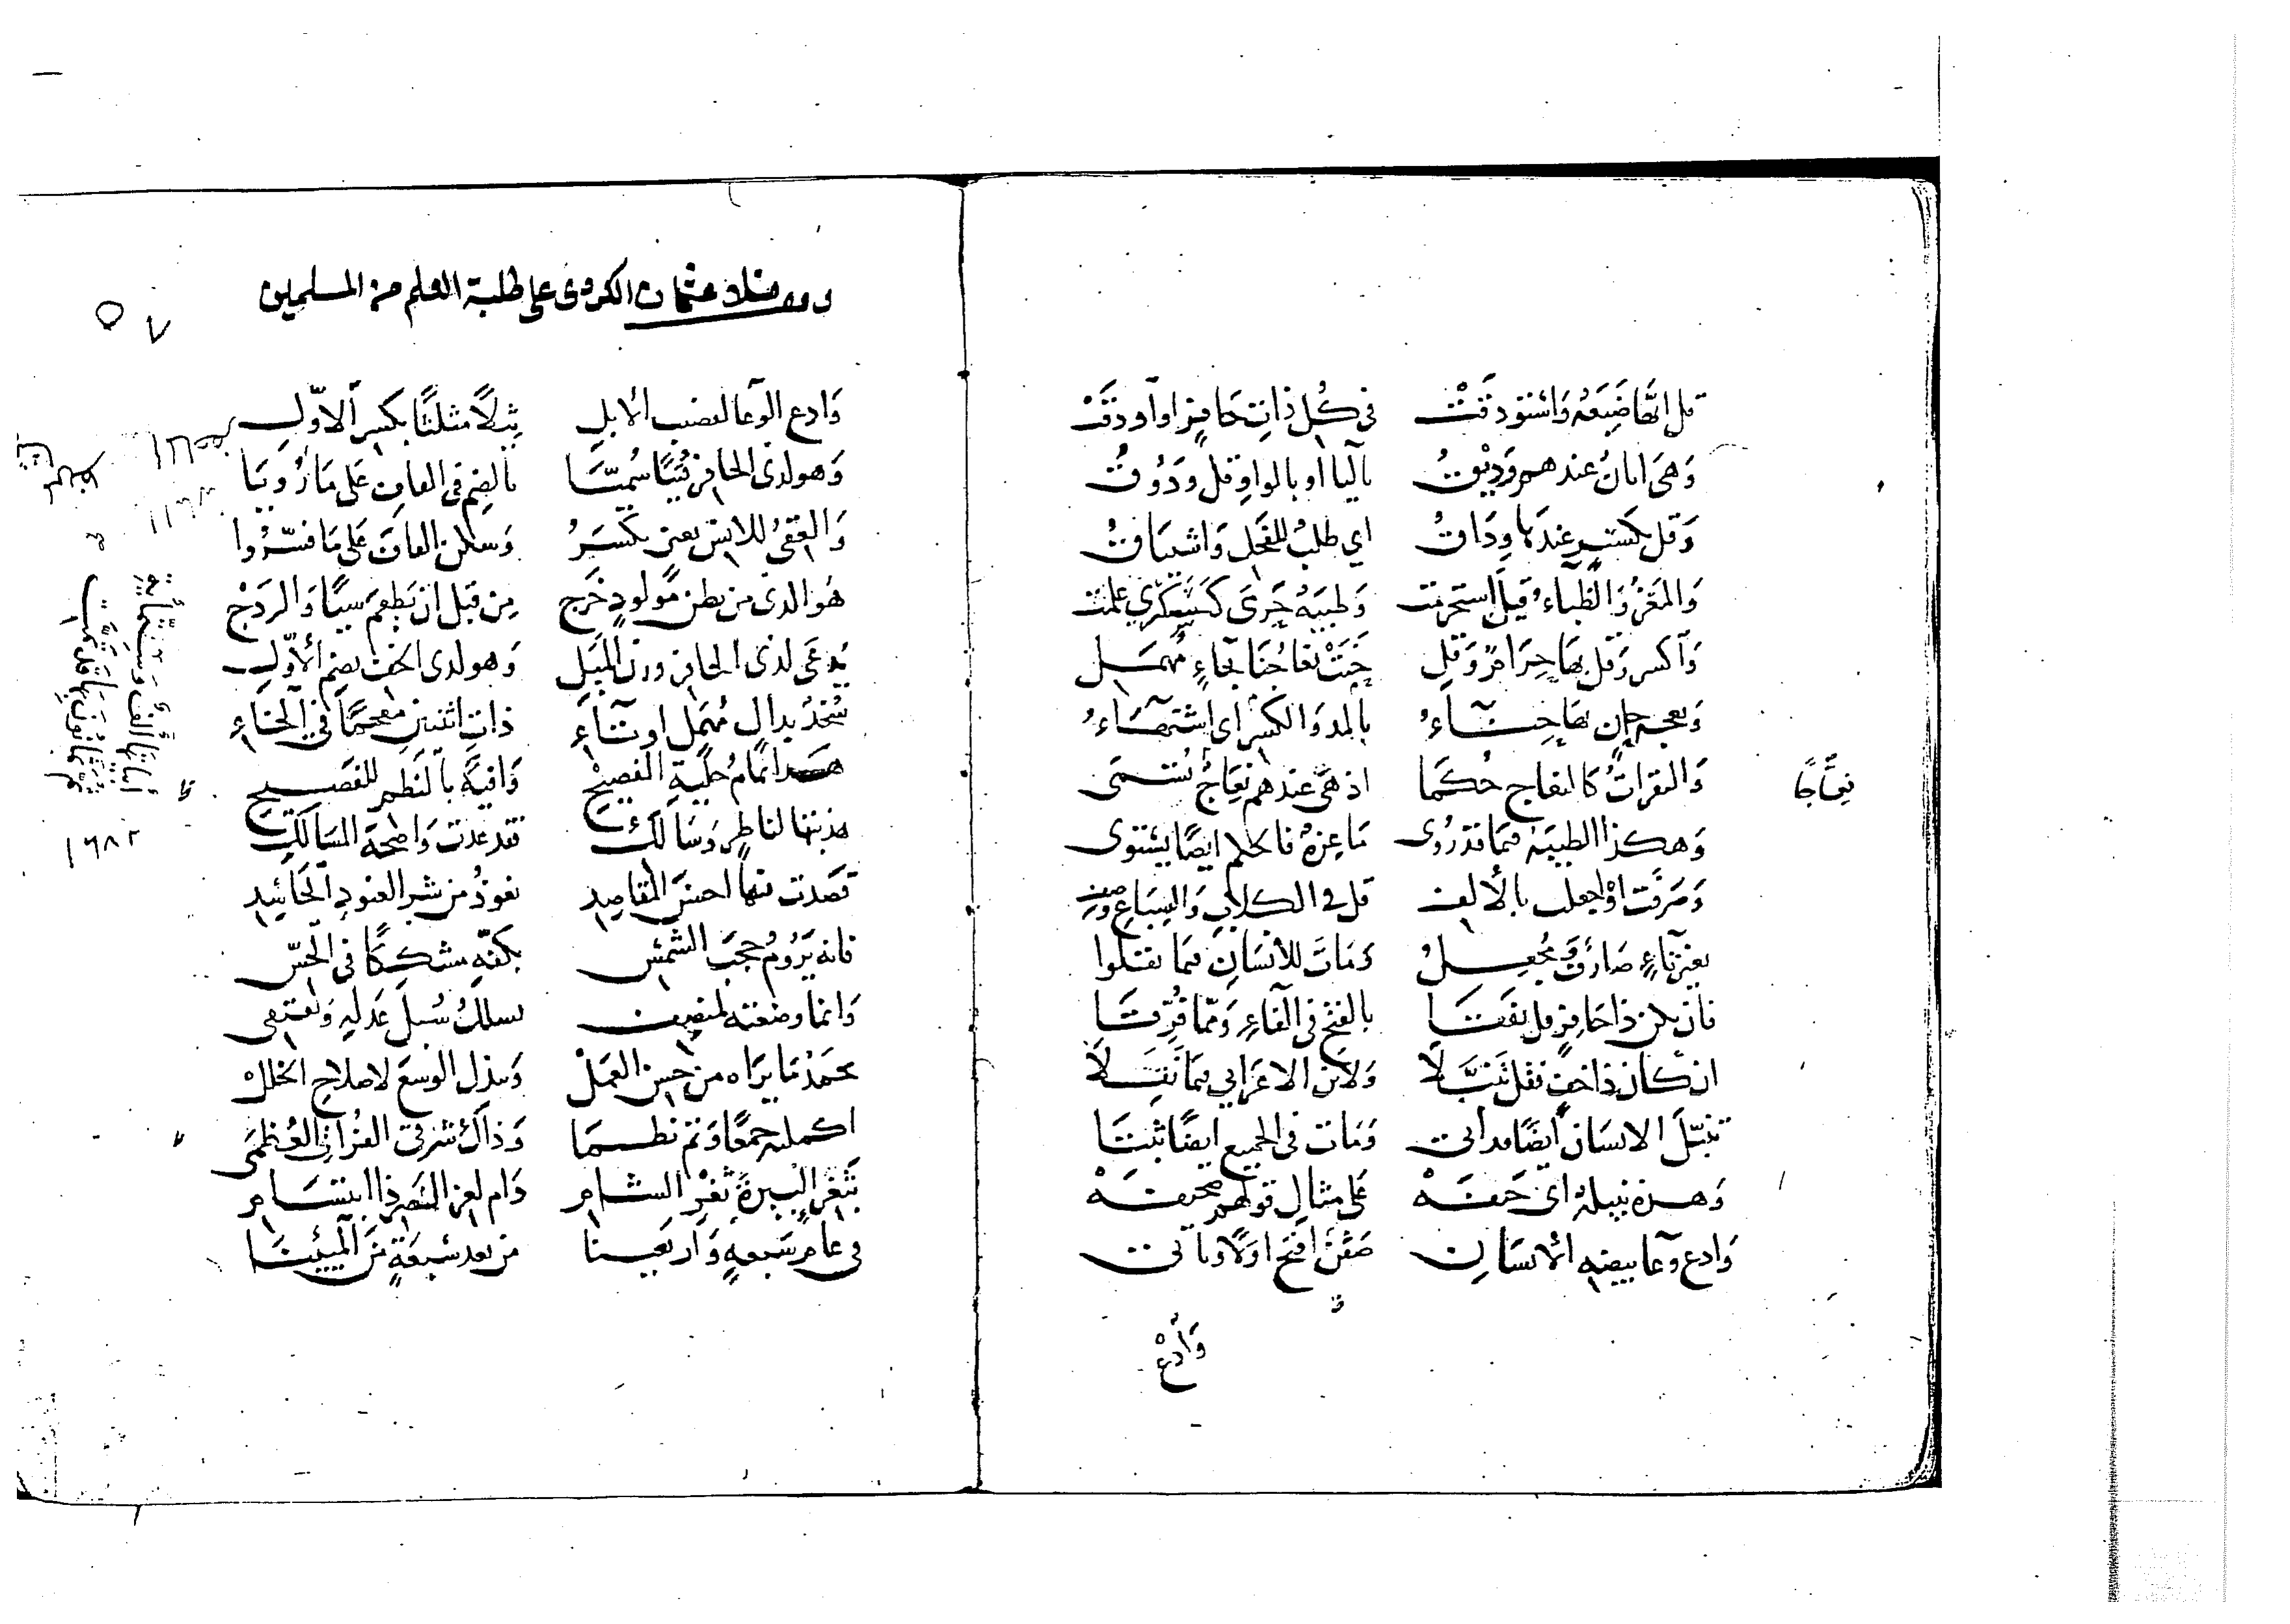 قل انها ضَبَعَه وَاسْتودقَتْ في كُل ذاتِ حَافِرٍ اوآودقَتْ
وَهيَ اتانُ عندهم وَديْقُ باليا او بالواوِ قل وَدُوقُ
وَقل بكسْرٍ عندَها وِدَاقُ اي طلبُ للفحَلِ وَاشتيَاقُ
وَالمَعَزُ وَالظباءُ قيل استحرمَت وَظبيَةُ حَرمَى كَسَكْرَى علمَت
وَاكسر وَقل بهَا حِرَامُ وَقلِ حَنَتْ نعَاجُنَا بحَاءٍ مُهمَلِ
وَنعجة حانٍ بهَا حِنَاءُ بالمد وَالكسْر اى اشتهَاءُ
وَالبقرَاتُ كَالنعاج حُكمَا اذ هيَ عندهم نِعَاجُ تُسْمَى
نِعَاجًا
وَهكذا الظبيَة فيمَا قد رُوى مَاعِزةُ فاعلم ايضًا يَستوى
وَصَرفَت اوْ اجعلت بالألف قل في الكلابِ وَالسِّبَاعِ وَصِفِ
بغير تاءٍ صَارِفُ وَ مُجْعِلُ وَمَاتَ للأنسَانِ فيمَا نقلوا
فان يكن ذا حَافِرٍ قل نفقَا بالفتح في الفاءِ وَممّا فُرِّقَا
ان كان ذا خفٍ فقل تَنبَّلَا وَلابن الاعرَابي فيمَا نَقَلَا
تنبّلَ الانسَان ايضًا قد اتى وَمَات في الجميع ايضًا ثبتَا
وَهذه نبيلة اى جيفَهْ عَلى مثالِ قولهم
وَادع وعَا بيضه الأنسَانِ صَفَنَ افتح اوّلا وثانى
وَادْعُ
عثمان الكردى على طلبة العلم من المسلمين
٥٧
وَادع الوعَا لقضيب الأبل ثِيْلاً مثلثًا بكسر الاوّلِ
وَهو لذي الحافر قُنبًا سُمِّيَا بالضم في القافِ عَلى مَا رُويَا
وَالعقىُ للانس بعينٍ تكسَرُ وَسكن القافَ عَلى مَا فسّرُوا
هُو الذى من بطن مَولودٍ خَرَج مِن قبل ان يَطعَمَ شيًا وَالردَجْ
يُدعَى لذى الحافر وزن المَيَلِ وَهو لدى الخف بضم الأوّلِ
سُخدُ بدالٍ مُهمَلٍ اوتاءِ ذاتِ اثنتينِ مُعجمًا في الخاءِ
هَذا تمامُ حليَة الفصيحِ وَافيَة بالنظم للفَصيحِ
هذبتها لناظِرٍ وَسَالكِ فقد غدت وَاضحة المسَالكِ
قصَدت فيها احسنَ المقاصِدِ نعوذُ من شر العنود الحَاسِدِ
فانه يَرُومُ حجبَ الشمْسِ بكفهِ مشككًا في الحسّ
وَانما وضعته لمنصِفِ يسلك سُبلَ عَدلِه وَيقتفى
يحمَدُ مَا يرَاه من حسن العَمَلْ وَيبذل الوسعَ لاصلاحِ الخلَلْ
اكملته جمعًا وَتم نظمَا وَذاك شرفى الغزاةِ العُظمَى
بثغر البيرة ثغرِ الشامِ دَام لعز النَصر ذا ابتسَامِ
في عَام سَبعةٍ وَاربعينا من بعد سَبعَةٍ مِنَ المِئينَا
١٦٨٢